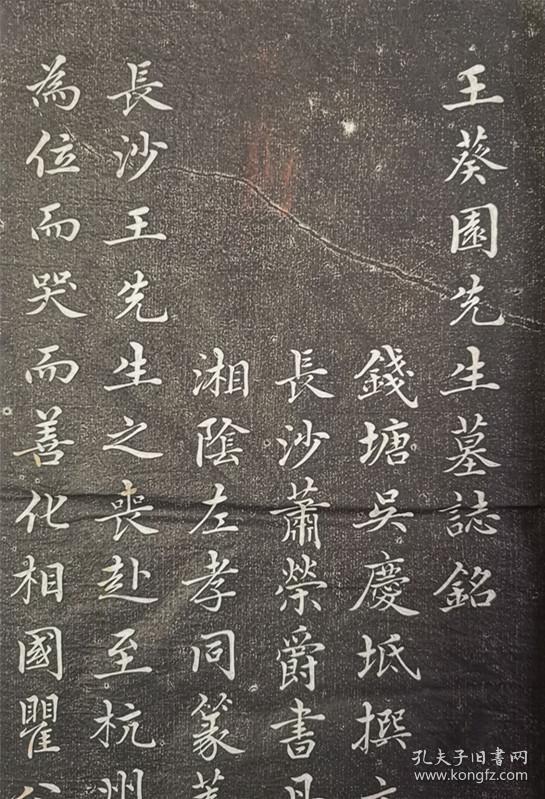 王葵園先生墓誌銘
錢塘吳慶坻撰文
長沙蕭榮爵書丹
湘陰左孝同篆蓋
長沙王先生之喪赴至杭州
為位而哭而善化相國瞿公
孔夫子旧书网
www.kongfz.com